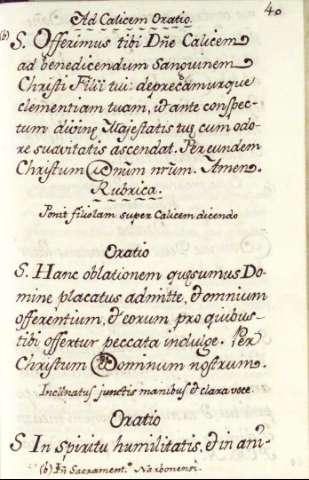 40
Ad Calicem Oratio.
(b) S. Offerimus tibi Dñe Calicem
ad benedicendum Sanguinem
Christi Filii tui: deprecamurque
clementiam tuam, ut ante conspec-
tum divinę Majestatis tuę cum odo-
re suavitatis ascendat. Per eundem
Christum Dnũm nrũm. Amen.
Rubrica.
Ponit fiuolam super Calicem dicendo
Oratio
S. Hanc oblationem quęsumus Do-
mine placatus admitte, & omnium
offerentium, & eorum pro quibus
tibi offertur peccata indulge. Per
Christum Dominum nostrum.
Inclinatus junctis manibus & clara voce
Oratio
S In spiritu humilitatis, & in ani-
(b) Iñ Sacrament.º Narbonensi.